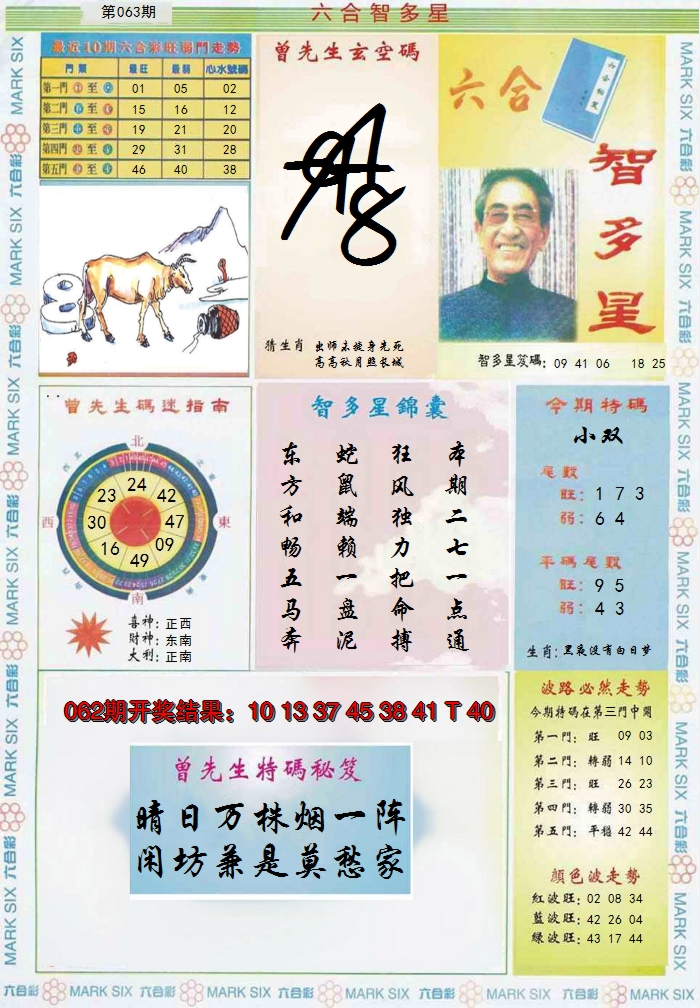 第063期
六合智多星
最近10期六合彩旺弱門走勢
門類 最旺 最弱 心水號碼
第一門 至 01 05 02
第二門 至 15 16 12
第三門 至 19 21 20
第四門 至 29 31 28
第五門 至 46 40 38
曾先生玄空碼
猜生肖 出师未捷身先死
高高秋月照长城
六合
智多星
智多星笈碼: 09 41 06 18 25
曾先生碼迷指南
北
西
東
南
24
42
47
09
49
16
30
23
喜神: 正西
财神: 东南
大利: 正南
智多星錦囊
本期二七一点通
狂风独力把命搏
蛇鼠端赖一盘泥
东方和畅五马奔
今期特碼
小双
尾數
旺: 1 7 3
弱: 6 4
平碼尾數
旺: 9 5
弱: 4 3
生肖: 黑夜没有白日梦
062期开奖结果: 10 13 37 45 38 41 T 40
曾先生特碼秘笈
晴日万株烟一阵
闲坊兼是莫愁家
波路必然走勢
今期特碼在第三門中開
第一門: 旺 09 03
第二門: 轉弱 14 10
第三門: 旺 26 23
第四門: 轉弱 30 35
第五門: 平穩 42 44
顏色波走勢
紅波旺: 02 08 34
藍波旺: 42 26 04
綠波旺: 43 17 44
六合彩 MARK SIX 六合彩 MARK SIX 六合彩 MARK SIX 六合彩 MARK SIX 六合彩